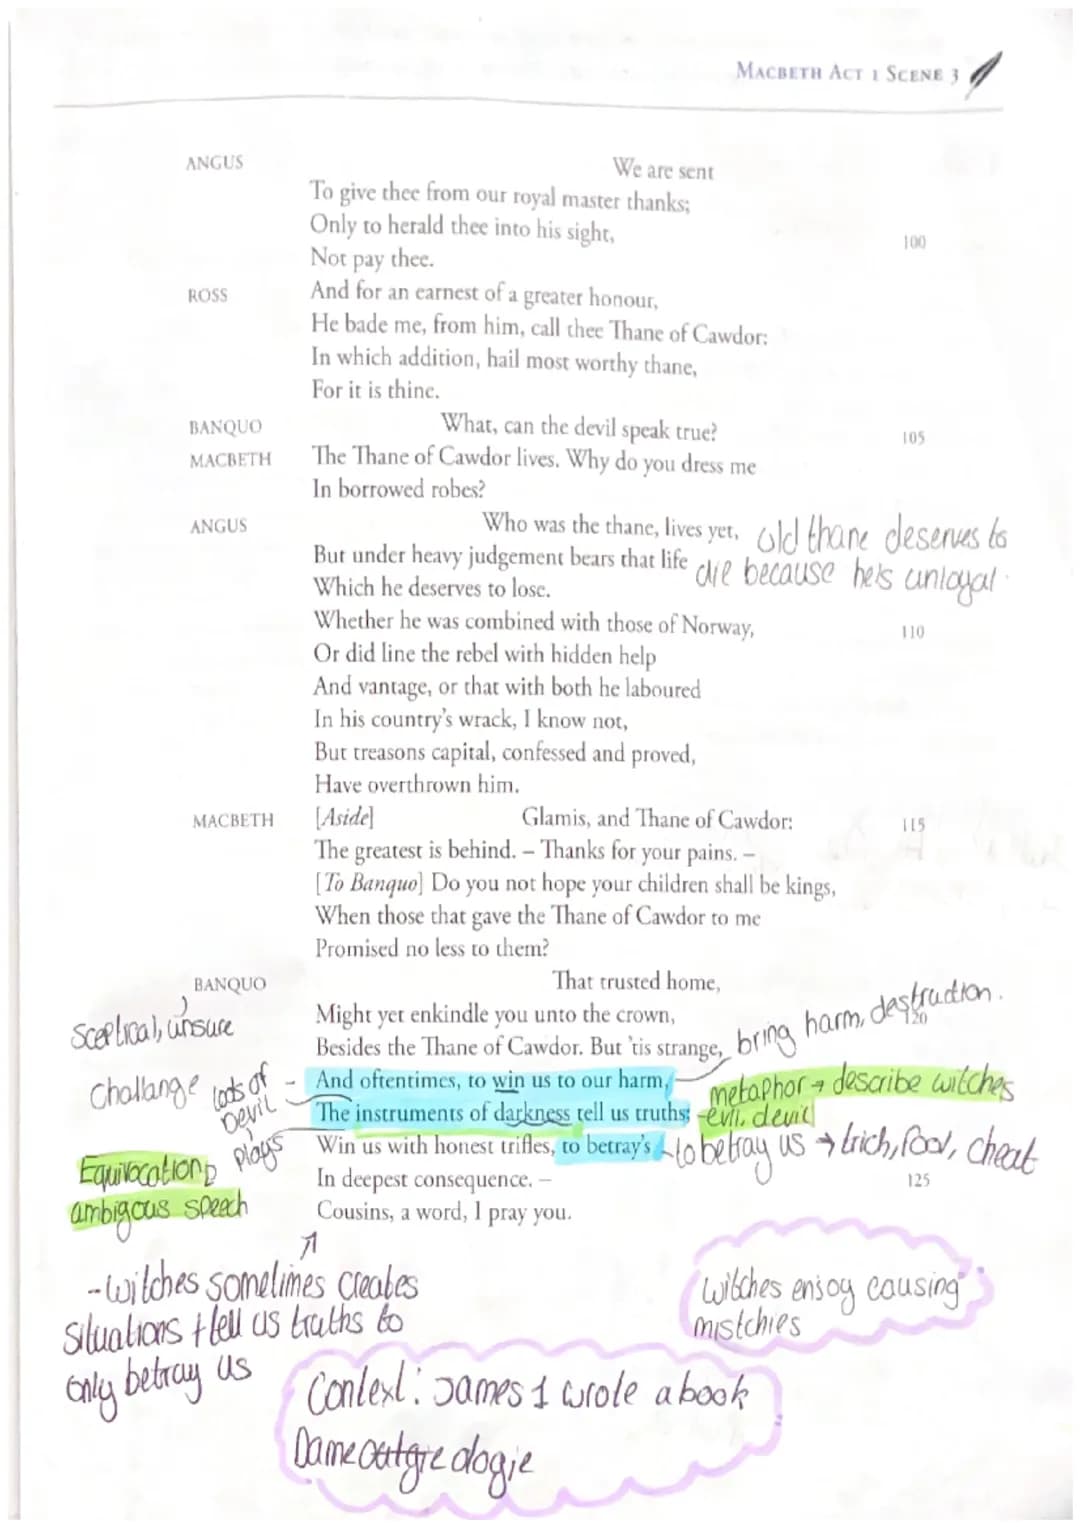 MACBETH ACT 1 SCENE 3
ANGUS We are sent
To give thee from our royal master thanks;
Only to herald thee into his sight, 100
Not pay thee.
ROSS And for an earnest of a greater honour,
He bade me, from him, call thee Thane of Cawdor:
In which addition, hail most worthy thane,
For it is thine.
BANQUO What, can the devil speak true? 105
MACBETH The Thane of Cawdor lives. Why do you dress me
In borrowed robes?
ANGUS Who was the thane, lives yet,
But under heavy judgement bears that life
Which he deserves to lose.
old thane deserves to
die because he's unloyal.
Whether he was combined with those of Norway, 110
Or did line the rebel with hidden help
And vantage, or that with both he laboured
In his country's wrack, I know not,
But treasons capital, confessed and proved,
Have overthrown him.
MACBETH [Aside] Glamis, and Thane of Cawdor: 115
The greatest is behind. – Thanks for your pains. –
[To Banquo] Do you not hope your children shall be kings,
When those that gave the Thane of Cawdor to me
Promised no less to them?
BANQUO That trusted home,
Might yet enkindle you unto the crown, 120
Besides the Thane of Cawdor. But 'tis strange,
And oftentimes, to win us to our harm,
The instruments of darkness tell us truths;
Win us with honest trifles, to betray's
In deepest consequence. – 125
Cousins, a word, I pray you.
Sceptical, unsure
Challange
lots of
Devil
plays
Equivocation
ambigous speech
bring harm, destruction.
metaphor → describe witches
- evil, devil
to betray us → trich, fool, cheat
- witches sometimes creates
situations + tell us truths to
only betray us
witches enjoy causing
mistchies
Context: James 1 wrote a book